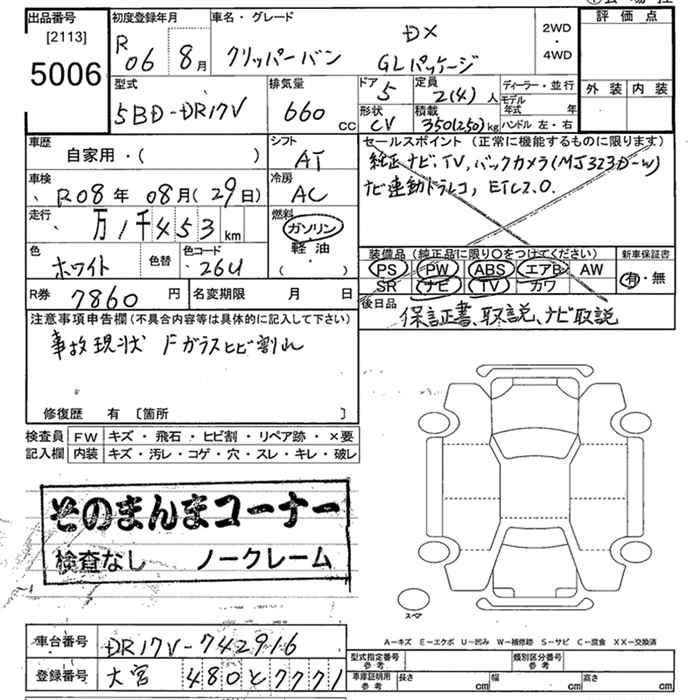 出品番号
[2113]
5006
初度登録年月
R 06 8月
車名・グレード
クリッパーバン
DX
GLパッケージ
2WD
・
4WD
評価点
外装 内装
型式
5BD-DR17V
排気量
660 cc
ドア 5
形状 CV
定員 2(4) 人
積載 350(250)kg
ディーラー・並行
モデル年式 年
ハンドル 左・右
車歴
自家用・( )
シフト
AT
車検
R08年 08月(29日)
冷房
AC
走行
万1千453 km
燃料
ガソリン
軽・油
・
( )
色
ホワイト
色替
色コード
26U
R券 7860 円
名変期限 月 日
セールスポイント(正常に機能するものに限ります)
純正ナビ、TV、バックカメラ(MJ323D-W)
ナビ連動ドラレコ、ETC2.0.
装備品(純正品に限り○をつけてください)
PS PW ABS エアB AW
SR ナビ TV カワ
新車保証書
有・無
後日品
保証書、取説、ナビ取説
注意事項申告欄(不具合内容等は具体的に記入して下さい)
事故現状 Fガラスヒビ割れ
修復歴 有 〔箇所 〕
検査員 FW キズ・飛石・ヒビ割・リペア跡・×要
記入欄 内装 キズ・汚レ・コゲ・穴・スレ・キレ・破レ
そのまんまコーナー
検査なし ノークレーム
スペア
A-キズ E-エクボ U-凹み W-補修跡 S-サビ C-腐食 XX-交換済
車台番号 DR17V-742916
登録番号 大宮 480 と 7771
型式指定番号
参考
類別区分番号
参考
車庫証明用
参考
長さ cm 幅 cm 高さ cm